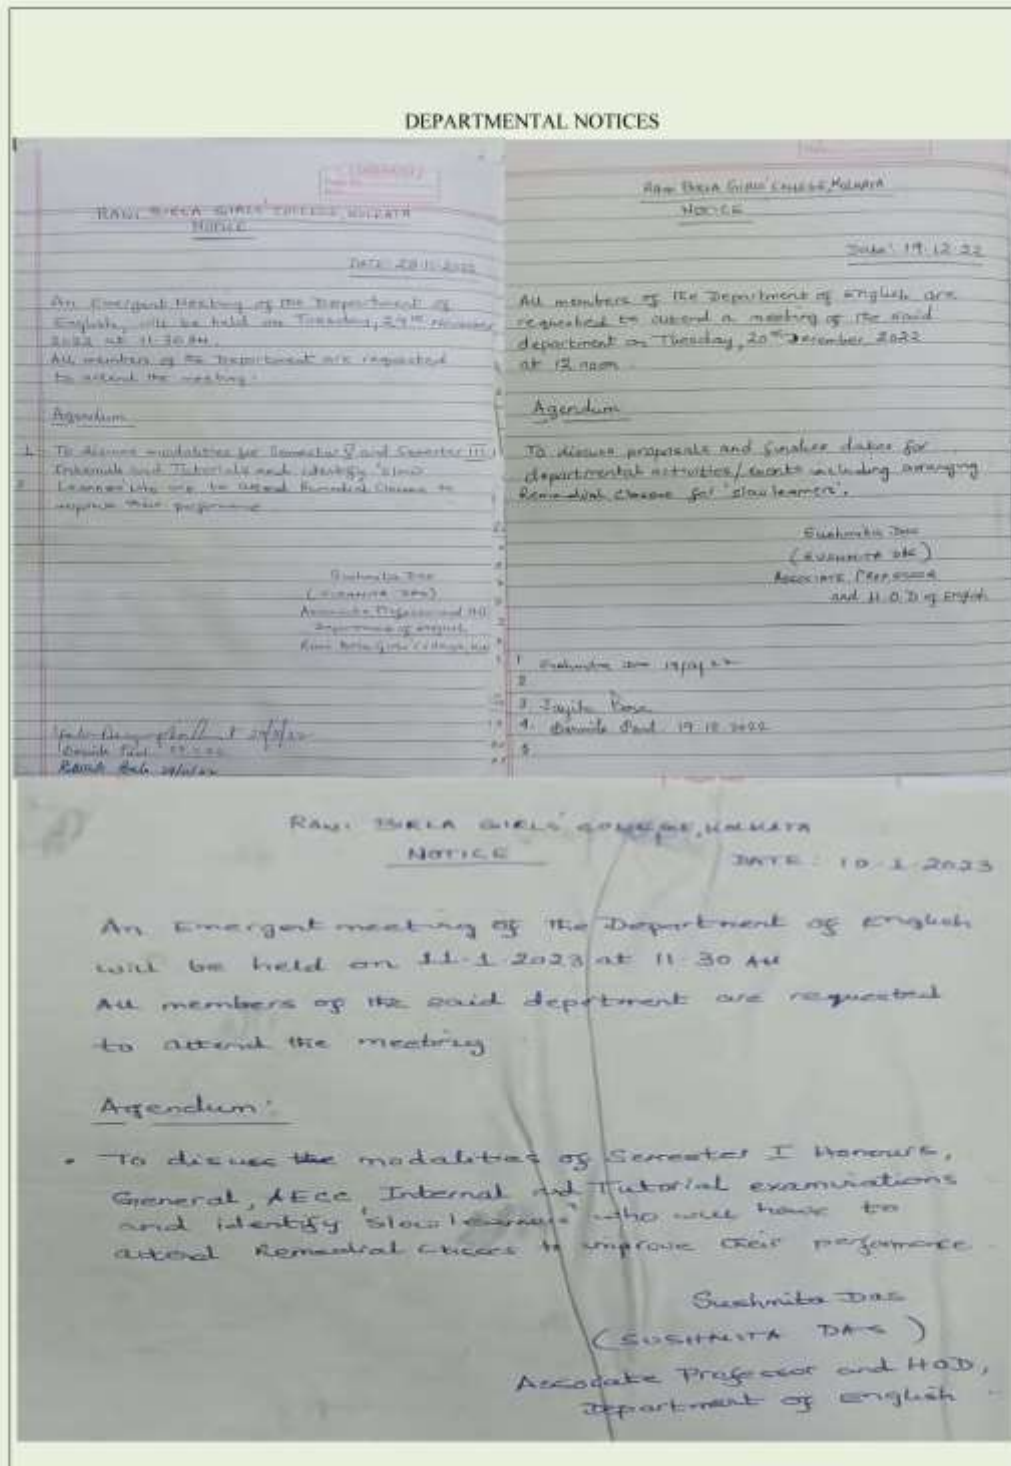 DEPARTMENTAL NOTICES
RANI BIRLA GIRLS' COLLEGE, KOLKATA
NOTICE
DATE: 28-11-2022
An Emergent Meeting of the Department of
English, will be held on Tuesday, 29th November
2022 at 11.30 AM.
All members of the Department are requested
to attend the meeting.
Agendum
1. To discuss modalities for Semester V and Semester III
Internals and Tutorials and identify 'slow
2. Learners' who are to attend Remedial Classes to
improve their performance
Sushmita Das
(SUSHMITA DAS)
Associate Professor and HOD
Department of English
Rani Birla Girls' College, Kol
RANI BIRLA GIRLS' COLLEGE, KOLKATA
NOTICE
Date: 19.12.22
All members of the Department of English are
requested to attend a meeting of the said
department on Tuesday, 20th December, 2022
at 12 noon.
Agendum
To discuss proposals and finalise dates for
departmental activities/events including arranging
Remedial Classes for 'slow learners'.
Sushmita Das
(SUSHMITA DAS)
ASSOCIATE PROFESSOR
and H.O.D of English
1 Sushmita Das 19/12/22
2
3.
4. 19.12.2022
5
RANI BIRLA GIRLS' COLLEGE, KOLKATA
NOTICE
DATE: 10-1-2023
An Emergent meeting of the Department of English
will be held on 11-1-2023 at 11-30 AM
All members of the said deptment are requested
to attend the meeting
Agendum:
• To discuss the modalities of Semester I Honours,
General, AECC Internal and Tutorial examinations
and identify 'slow learners' who will have to
attend Remedial Classes to improve their performance.
Sushmita Das
(SUSHMITA DAS)
Associate Professor and HOD,
Department of English